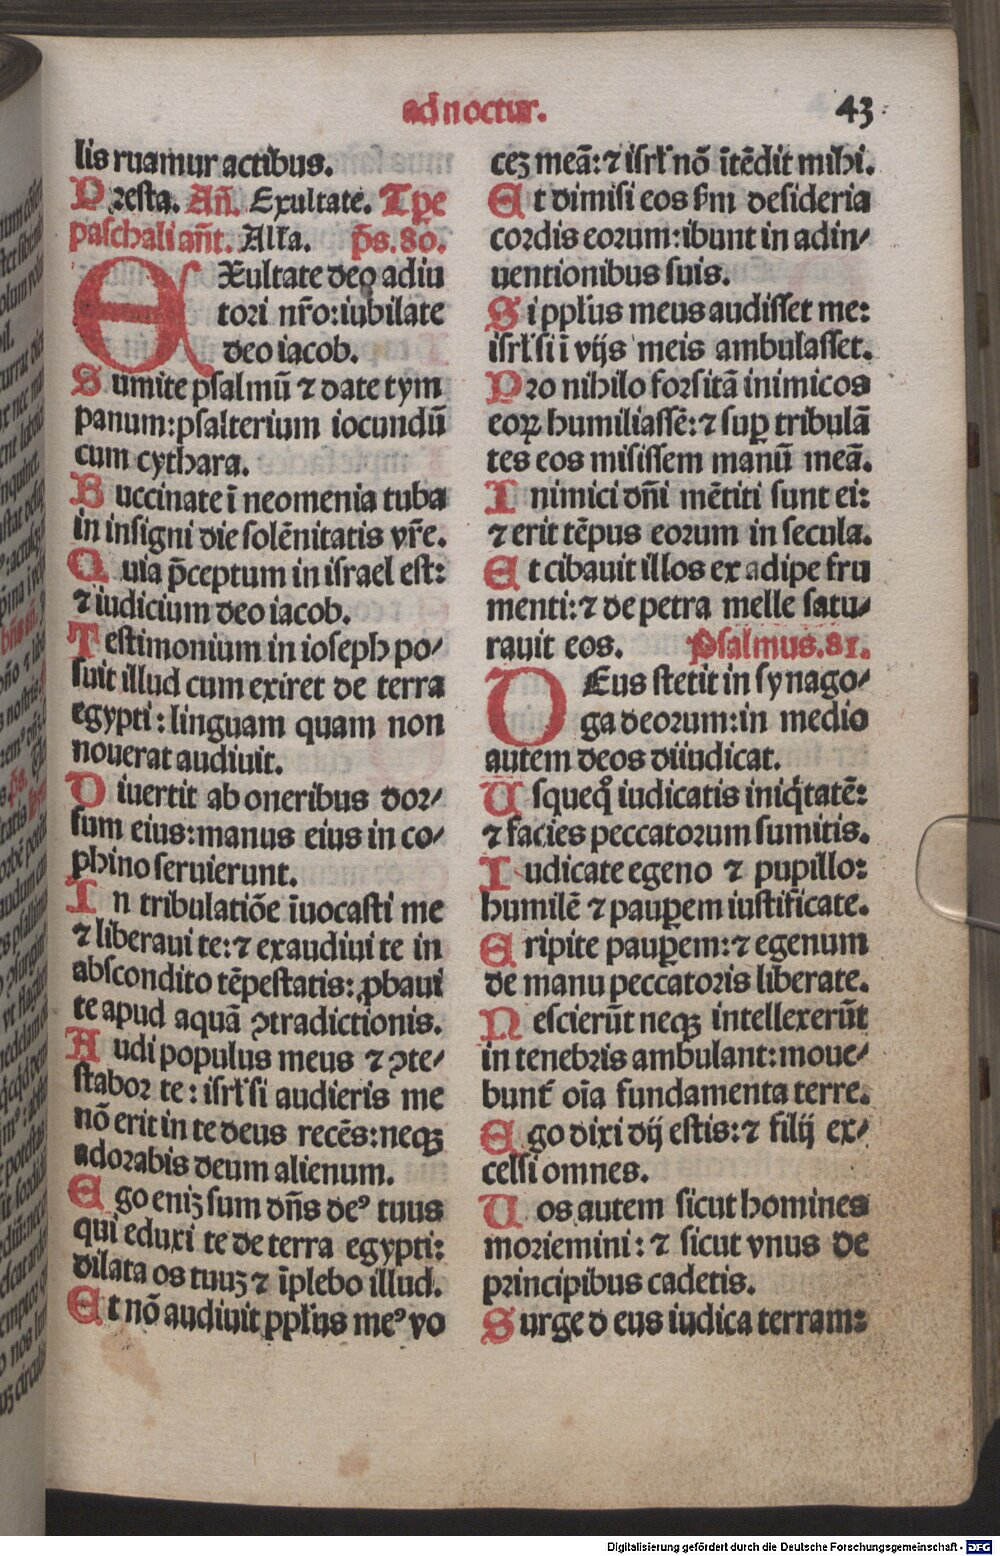 ad noctur.
43
lis ruamur actibus.
Presta. Añ. Exultate. Tpe
paschali añt. Alƚa. p̄s. 80.
EXultate deo adiu
tori nr̄o: iubilate
deo iacob.
Sumite psalmū ⁊ date tym
panum: psalterium iocundū
cum cythara.
Buccinate ī neomenia tuba
in insigni die solēnitatis vr̄e.
Quia p̄ceptum in israel est:
⁊ iudicium deo iacob.
Testimonium in ioseph po⸗
suit illud cum exiret de terra
egypti: linguam quam non
nouerat audiuit.
Diuertit ab oneribus dor⸗
sum eius: manus eius in co⸗
phino seruierunt.
In tribulatiōe īuocasti me
⁊ liberaui te: ⁊ exaudiui te in
abscondito tēpestatis: ꝓbaui
te apud aquā ꝯtradictionis.
Audi populus meus ⁊ ꝯte⸗
stabor te: isrƚ si audieris me
nō erit in te deus recēs: neqꝫ
adorabis deum alienum.
Ego eniꝫ sum dn̄s deꝰ tuus
qui eduxi te de terra egypti:
dilata os tuuꝫ ⁊ īplebo illud.
Et nō audiuit ppƚus meꝰ vo
ceꝫ meā: ⁊ isrƚ nō ītēdit mihi.
Et dimisi eos ẜm desideria
cordis eorum: ibunt in adin⸗
uentionibus suis.
Si ppƚus meus audisset me:
isrƚ si ī vijs meis ambulasset.
Pro nihilo forsitā inimicos
eoꝝ humiliassē: ⁊ suꝑ tribulā
tes eos misissem manū meā.
Inimici dn̄i mētiti sunt ei:
⁊ erit tēpus eorum in secula.
Et cibauit illos ex adipe fru
menti: ⁊ de petra melle satu⸗
rauit eos. Psalmus. 81.
DEus stetit in synago⸗
ga deorum: in medio
autem deos diiudicat.
Usqueqͦ iudicatis iniqͥtatē:
⁊ facies peccatorum sumitis.
Iudicate egeno ⁊ pupillo:
humilē ⁊ pauꝑem iustificate.
Eripite pauꝑem: ⁊ egenum
de manu peccatoris liberate.
Nescierūt neqꝫ intellexerūt
in tenebris ambulant: moue⸗
bunt᷑ oīa fundamenta terre.
Ego dixi dij estis: ⁊ filij ex⸗
celsi omnes.
Uos autem sicut homines
moriemini: ⁊ sicut vnus de
principibus cadetis.
Surge deus iudica terram:
Digitalisierung gefördert durch die Deutsche Forschungsgemeinschaft - DFG